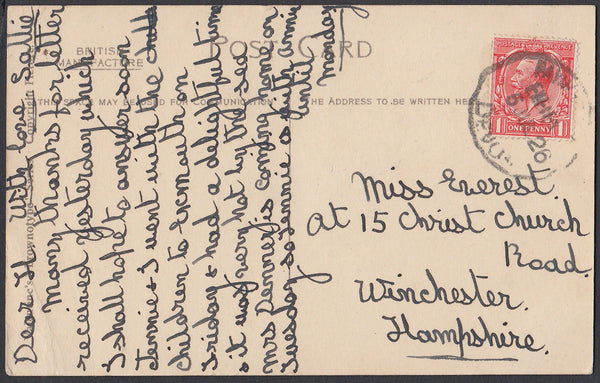 BRITISH
MANUFACTURE
POST CARD
THIS SPACE MAY BE USED FOR COMMUNICATION
THE ADDRESS TO BE WRITTEN HERE
POSTAGE REVENUE
ONE PENNY
1 1
26
With love Sallie
Dear H
Many thanks for letter
received yesterday which
I shall hope to answer soon
Jennie & I went with the
children to Exmouth on
Friday & had a delightful time
it was very hot by the sea
Mrs Denner is coming home on
Tuesday so Jennie is with Annie
until Monday
Miss Everest.
At 15 Christ Church
Road.
Winchester.
Hampshire.